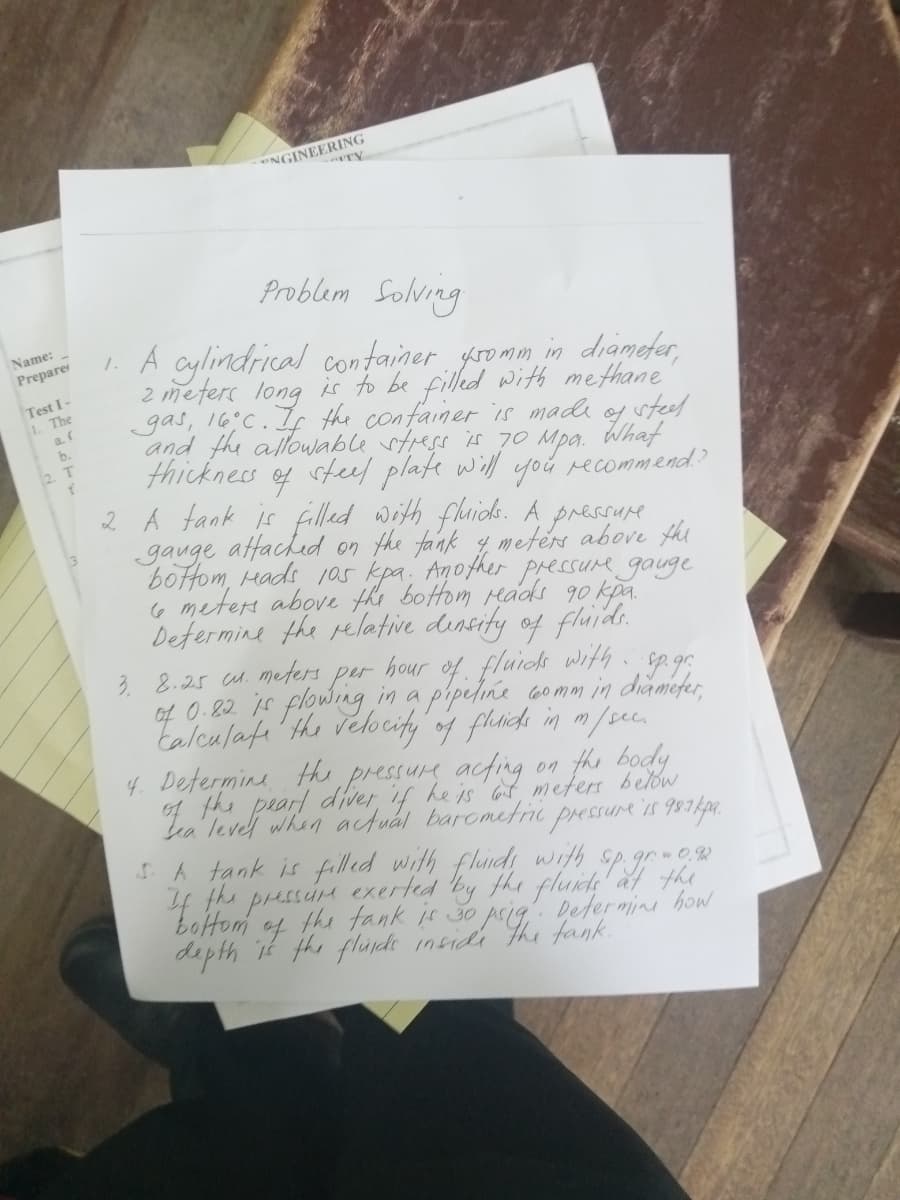 ENGINEERING
Name:
Prepared
Test I -
1. The
a.
b.
2. T
3
Problem Solving
1. A cylindrical container 450mm in diameter,
2 meters long is to be filled with methane
gas, 16°C. If the container is made of steel
and the allowable stress is 70 Mpa. What
thickness of steel plate will you recommend?
2 A tank is filled with fluids. A pressure
gauge attached on the tank 4 meters above the
bottom reads 105 kpa. Another pressure gauge
6 meters above the bottom reads 90 kpa.
Determine the relative density of fluids.
3. 8.25 cu. meters per hour of fluids with sp. gr.
of 0.82 is flowing in a pipeline 60mm in diameter,
calculate the velocity of fluids in m/sec
4. Determine the pressure acting on the body
of the pearl diver if he is meters below
sea level when actual barometric pressure is 98.7kpa.
5. A tank is filled with fluids with sp. gr. = 0.92
If the pressure exerted by the fluids at the
bottom of the tank is 30 psig. Determine how
depth is the fluids inside the tank.